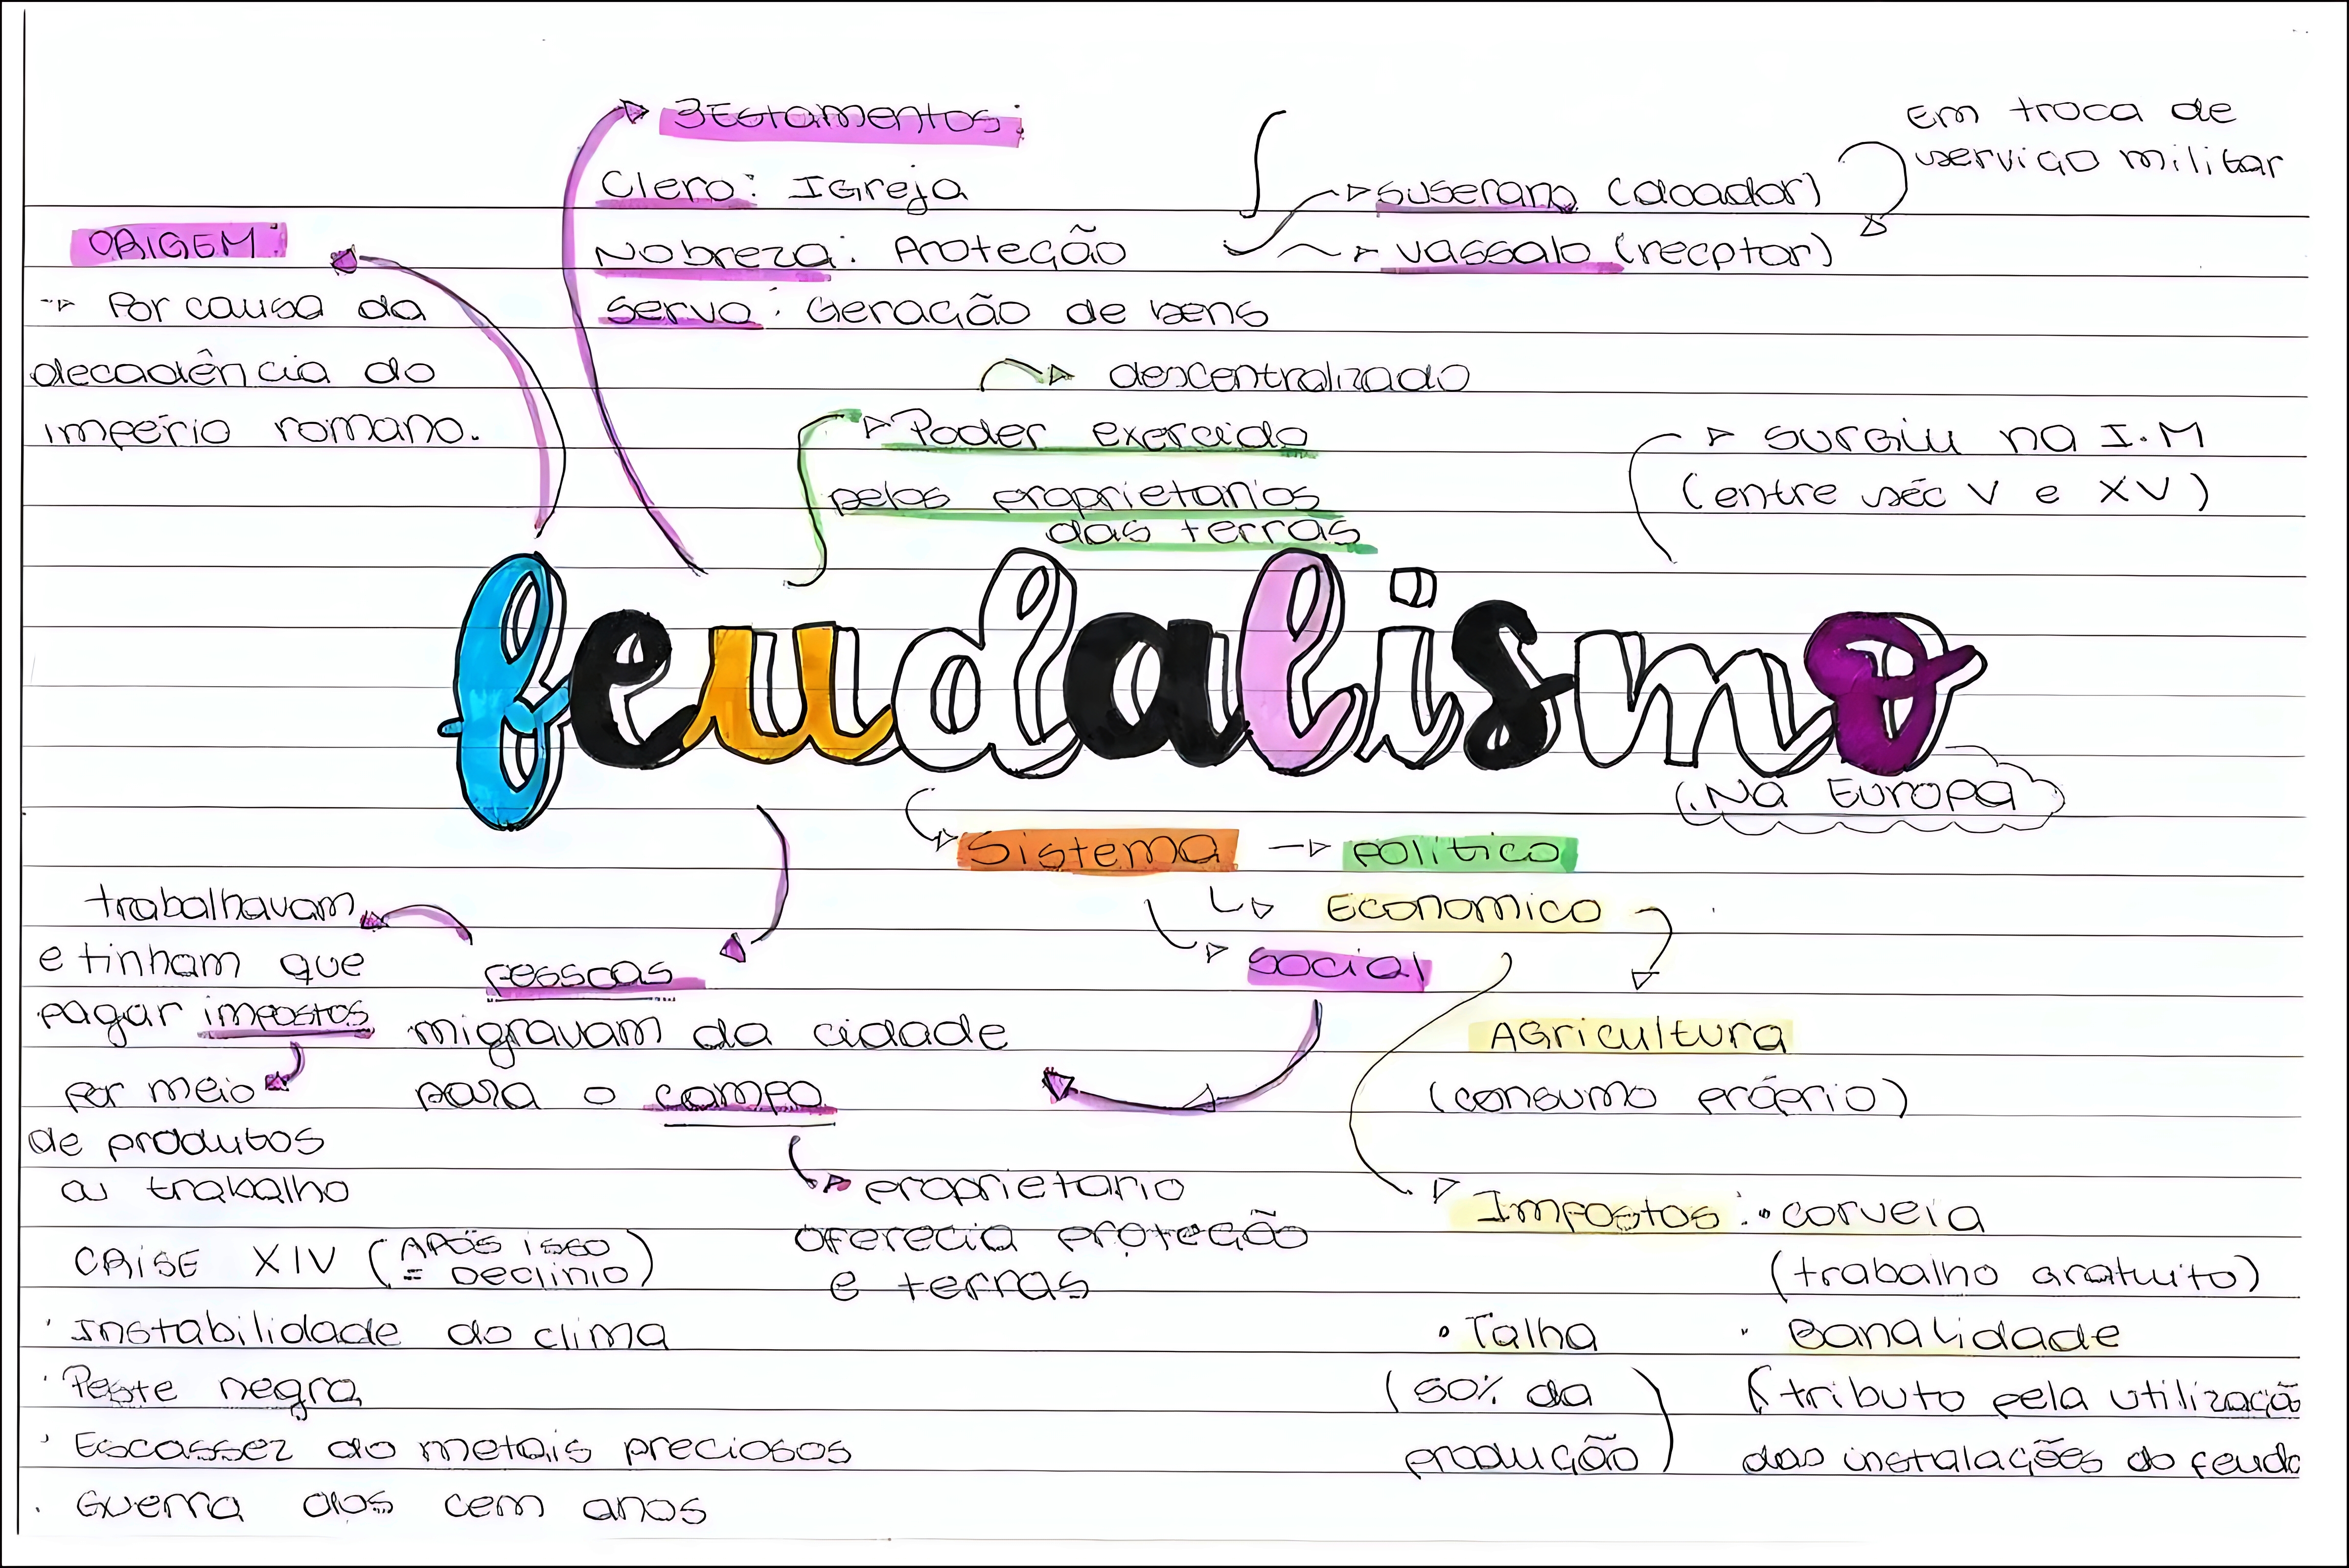 3 Estamentos:
Clero: Igreja
Nobreza: Proteção
Servo: Geração de bens
suserano (doador)
vassalo (recptor)
Em troca de
serviço militar
ORIGEM:
Por causa da
decadência do
império romano.
descentralizado
Poder exercido
pelos proprietarios
das terras
surgiu na I.M
(entre séc V e XV)
feudalismo
(Na Europa)
Sistema → político
Economico
social
Agricultura
(consumo próprio)
Impostos: • corveia
(trabalho gratuito)
• Talha
(50% da
produção)
• Banalidade
(tributo pela utilização
das instalações do feudo
pessoas
migravam da cidade
para o campo
proprietario
oferecia proteção
e terras
trabalhavam
e tinham que
pagar impostos
por meio
de produtos
ou trabalho
CRISE XIV (APÓS isso
= Declínio)
• Instabilidade do clima
• Peste negra
• Escassez do metais preciosos
• Guerra dos cem anos